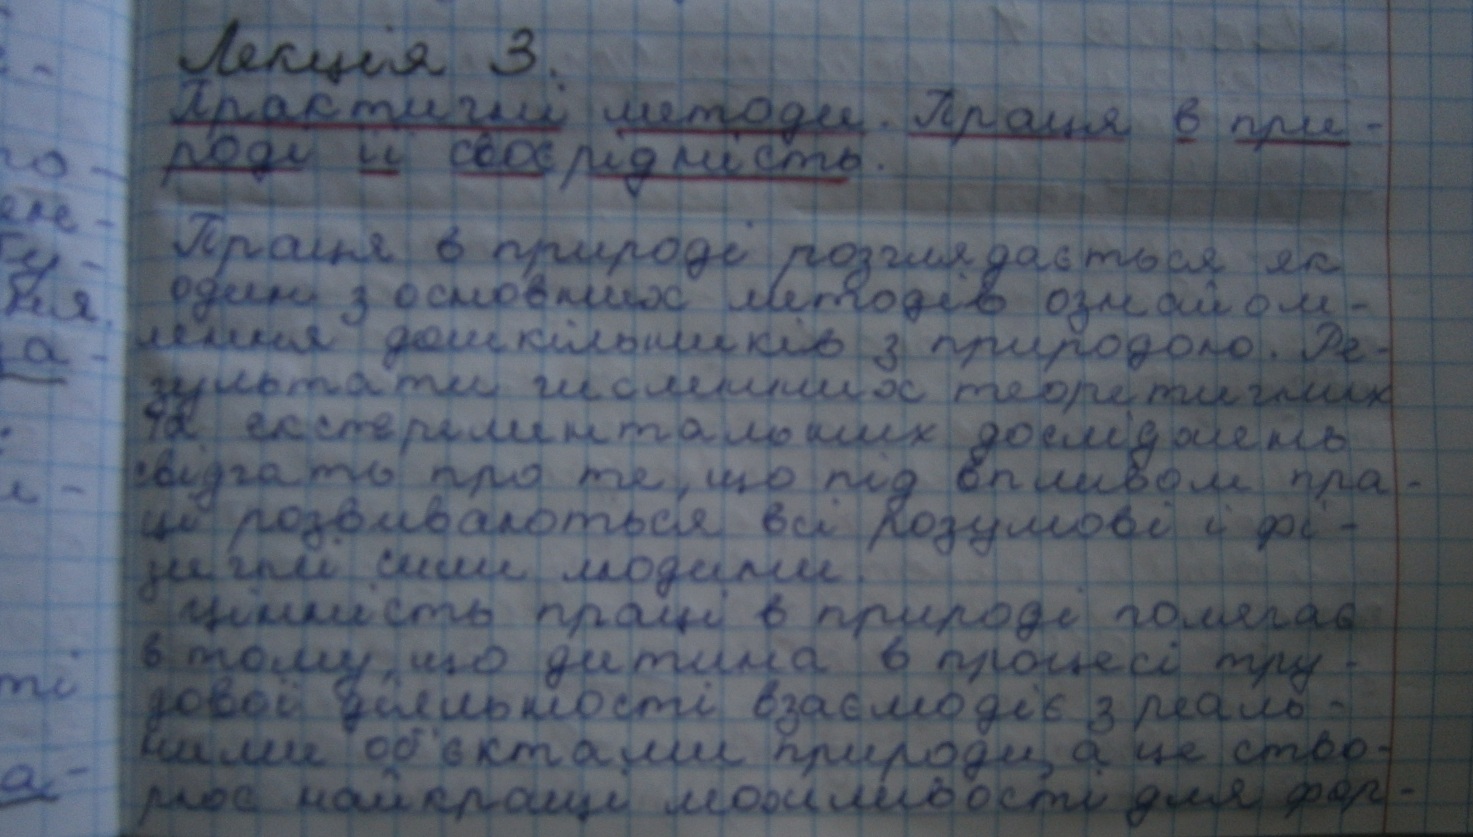 Лекція 3.
Практичні методи. Праця в при-
роді її своєрідність.
Праця в природі розглядається як
один з основних методів ознайом-
лення дошкільників з природою. Ре-
зультати численних теоретичних
та експерементальних досліджень
свідчать про те, що під впливом пра-
ці розвиваються всі розумові і фі-
зичні сили людини.
Цінність праці в природі помягає
в тому, що дитина в процесі тру-
дової діяльності взаємодіє з реаль-
ними об'єктами природи, а це ство-
рює найкращі можливості для фор-
го-
ту-
ня.
а-
ті
а-